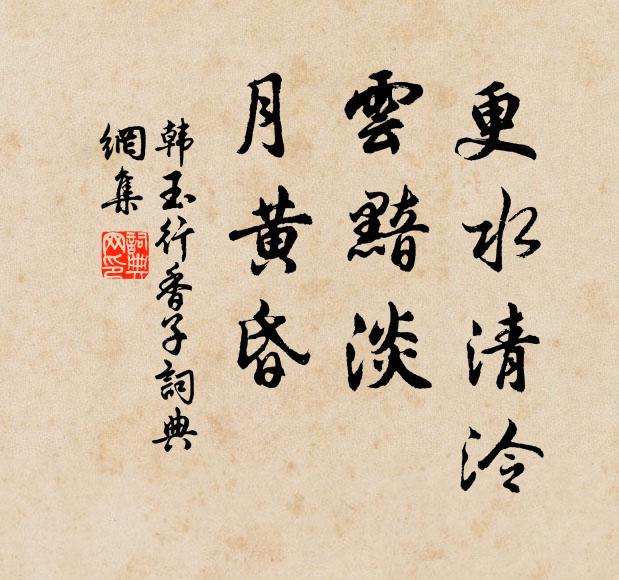 更水清泠
雲黯淡
月黃昏
韩玉行香子詞典
網集
詞典
网印